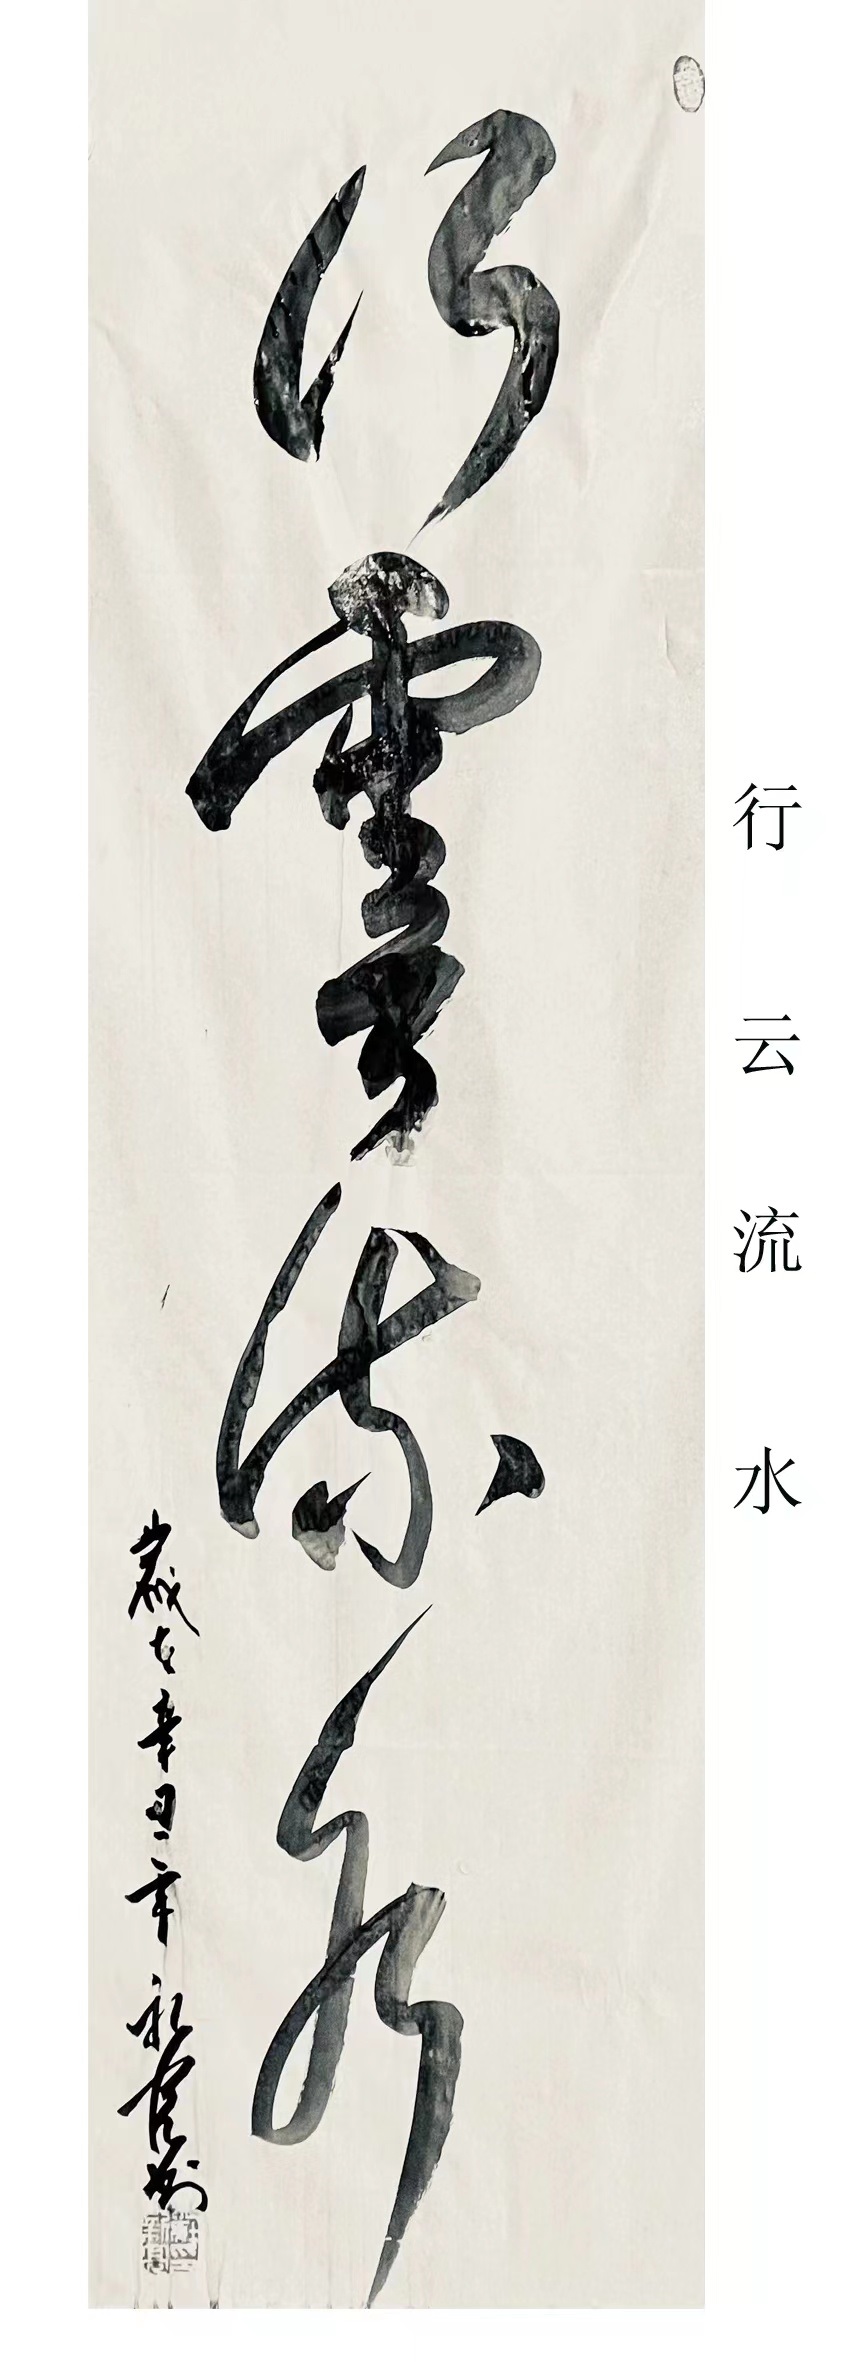 行云流水
行雲流水
歲在辛丑年